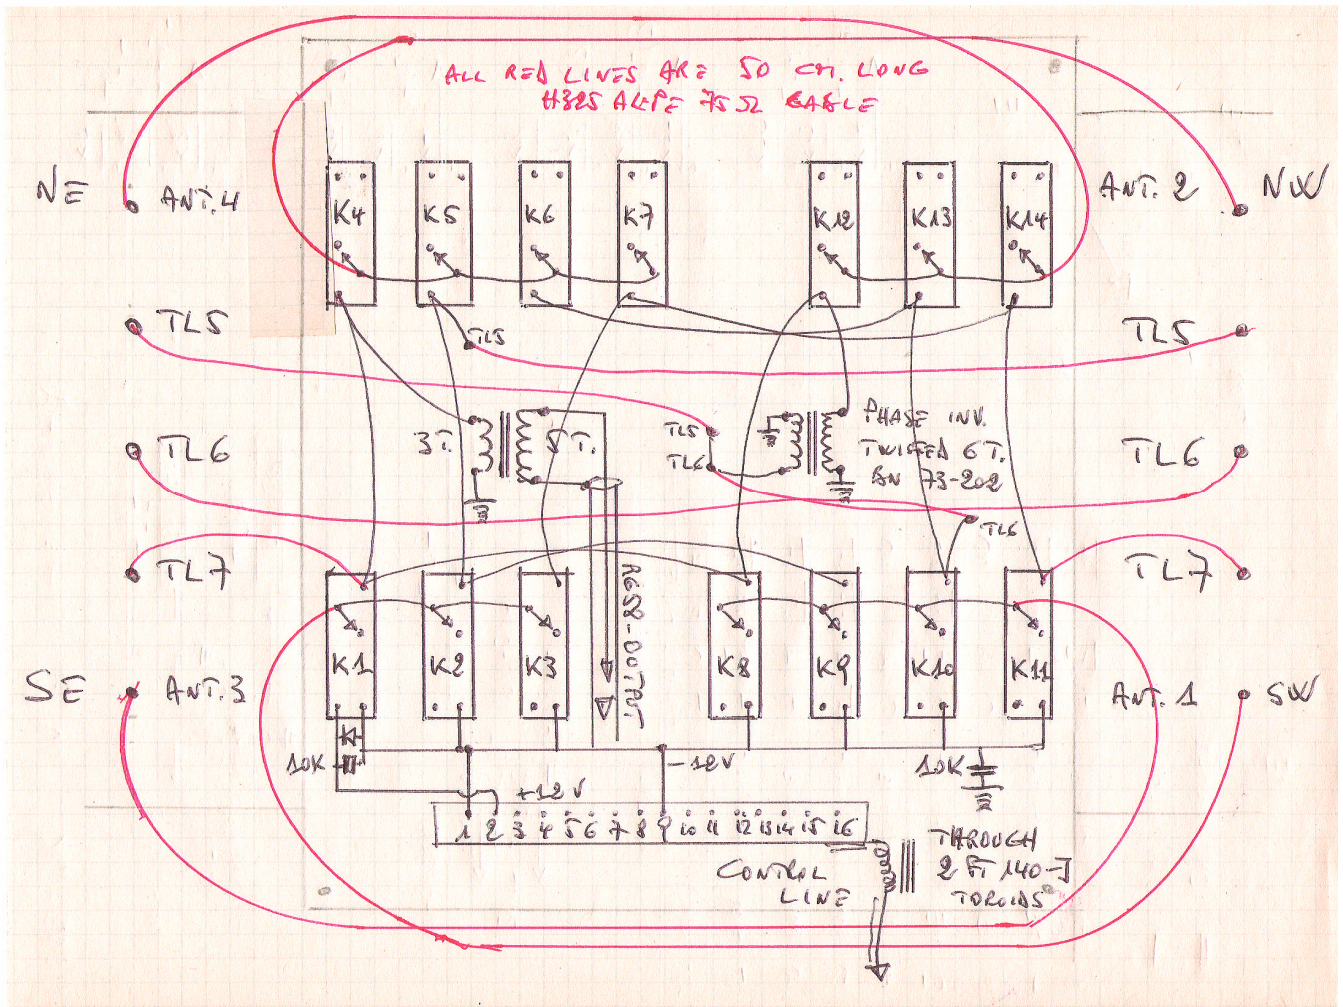 ALL RED LINES ARE 50 CM. LONG
H325 ALPE 75 Ω CABLE
NE
ANT.4
K4
K5
K6
K7
K12
K13
K14
ANT. 2
NW
TL5
TL5
TL5
TL5
TL6
TL6
TL6
TL6
3T.
5T.
PHASE INV.
TWISTED 6T.
BN 73-202
TL7
TL7
RG58-OUTPUT
SE
ANT.3
K1
K2
K3
K8
K9
K10
K11
ANT. 1
SW
10K
-12V
10K
+12V
1 2 3 4 5 6 7 8 9 10 11 12 13 14 15 16
CONTROL
LINE
THROUGH
2 FT 140-J
TOROIDS